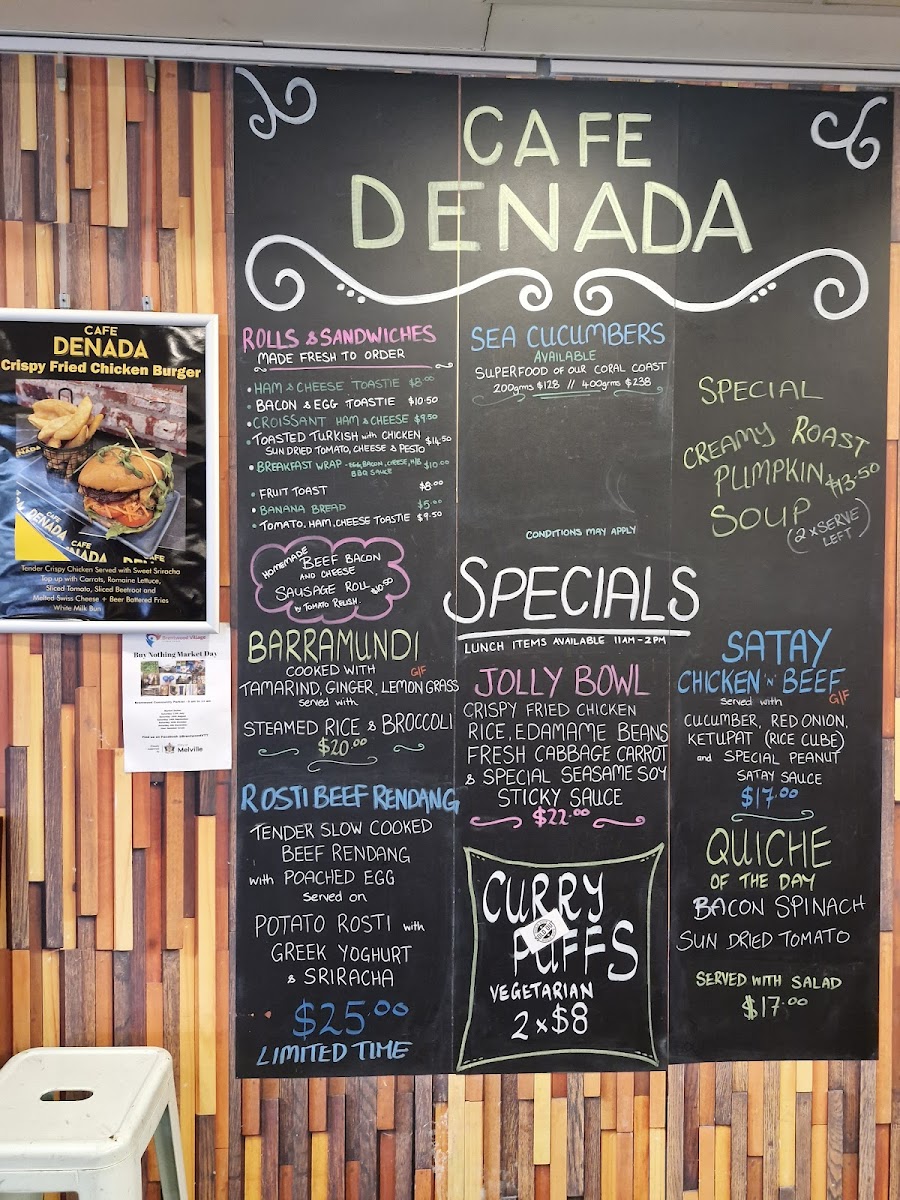 CAFE
DENADA
ROLLS & SANDWICHES
MADE FRESH TO ORDER
• HAM & CHEESE TOASTIE $8.00
• BACON & EGG TOASTIE $10.50
• CROISSANT HAM & CHEESE $9.50
• TOASTED TURKISH with CHICKEN $14.50
SUN DRIED TOMATO, CHEESE & PESTO
• BREAKFAST WRAP - EGG, BACON, CHEESE, H/B $10.00
BBQ SAUCE
• FRUIT TOAST $8.00
• BANANA BREAD $5.00
• TOMATO, HAM, CHEESE TOASTIE $9.50
HOMEMADE
BEEF BACON
AND CHEESE
SAUSAGE ROLL $10.50
w/ TOMATO RELISH
BARRAMUNDI
COOKED WITH G/F
TAMARIND, GINGER, LEMON GRASS
served with
STEAMED RICE & BROCCOLI
$20.00
ROSTI BEEF RENDANG
TENDER SLOW COOKED
BEEF RENDANG
with POACHED EGG
served on
POTATO ROSTI with
GREEK YOGHURT
& SRIRACHA
$25.00
LIMITED TIME
SEA CUCUMBERS
AVAILABLE
SUPERFOOD OF OUR CORAL COAST
200grms $128 // 400grms $238
CONDITIONS MAY APPLY
SPECIALS
LUNCH ITEMS AVAILABLE 11AM - 2PM
JOLLY BOWL
CRISPY FRIED CHICKEN
RICE, EDAMAME BEANS
FRESH CABBAGE CARROT
& SPECIAL SEASAME SOY
STICKY SAUCE
$22.00
CURRY
PUFFS
VEGETARIAN
2 x $8
SPECIAL
CREAMY ROAST
PUMPKIN $13.50
SOUP
(2 x SERVE
LEFT)
SATAY
CHICKEN 'N' BEEF
served with G/F
CUCUMBER, RED ONION,
KETUPAT (RICE CUBE)
and SPECIAL PEANUT
SATAY SAUCE
$17.00
QUICHE
OF THE DAY
BACON SPINACH
SUN DRIED TOMATO
SERVED WITH SALAD
$17.00
CAFE
DENADA
Crispy Fried Chicken Burger
DENADA
CAFE
Tender Crispy Chicken Served with Sweet Sriracha
Top up with Carrots, Romaine Lettuce,
Sliced Tomato, Sliced Beetroot and
Melted Swiss Cheese + Beer Battered Fries
White Milk Bun
Brentwood Village
Buy Nothing Market Day
Melville